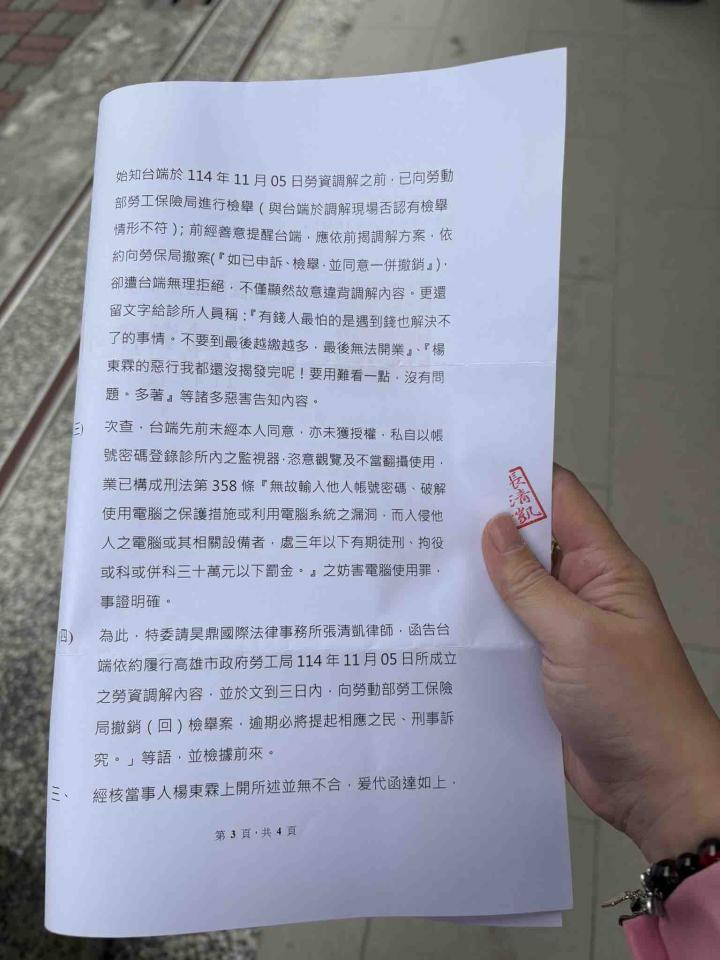 始知台端於 114 年 11 月 05 日勞資調解之前，已向勞動
部勞工保險局進行檢舉（與台端於調解現場否認有檢舉
情形不符）；前經善意提醒台端，應依前揭調解方案，依
約向勞保局撤案(『如已申訴、檢舉，並同意一併撤銷』)，
卻遭台端無理拒絕，不僅顯然故意違背調解內容。更還
留文字給診所人員稱：『有錢人最怕的是遇到錢也解決不
了的事情。不要到最後越繳越多，最後無法開業』、『楊
東霖的惡行我都還沒揭發完呢！要用難看一點，沒有問
題。多著』等諸多惡害告知內容。
三) 次查，台端先前未經本人同意，亦未獲授權，私自以帳
號密碼登錄診所內之監視器，恣意觀覽及不當翻攝使用，
業已構成刑法第 358 條『無故輸入他人帳號密碼、破解
使用電腦之保護措施或利用電腦系統之漏洞，而入侵他
人之電腦或其相關設備者，處三年以下有期徒刑、拘役
或科或併科三十萬元以下罰金。』之妨害電腦使用罪，
事證明確。
四) 為此，特委請昊鼎國際法律事務所張清凱律師，函告台
端依約履行高雄市政府勞工局 114 年 11 月 05 日所成立
之勞資調解內容，並於文到三日內，向勞動部勞工保險
局撤銷（回）檢舉案，逾期必將提起相應之民、刑事訴
究。」等語，並檢據前來。
三、 經核當事人楊東霖上開所述並無不合，爰代函達如上，
第 3 頁，共 4 頁
張清凱